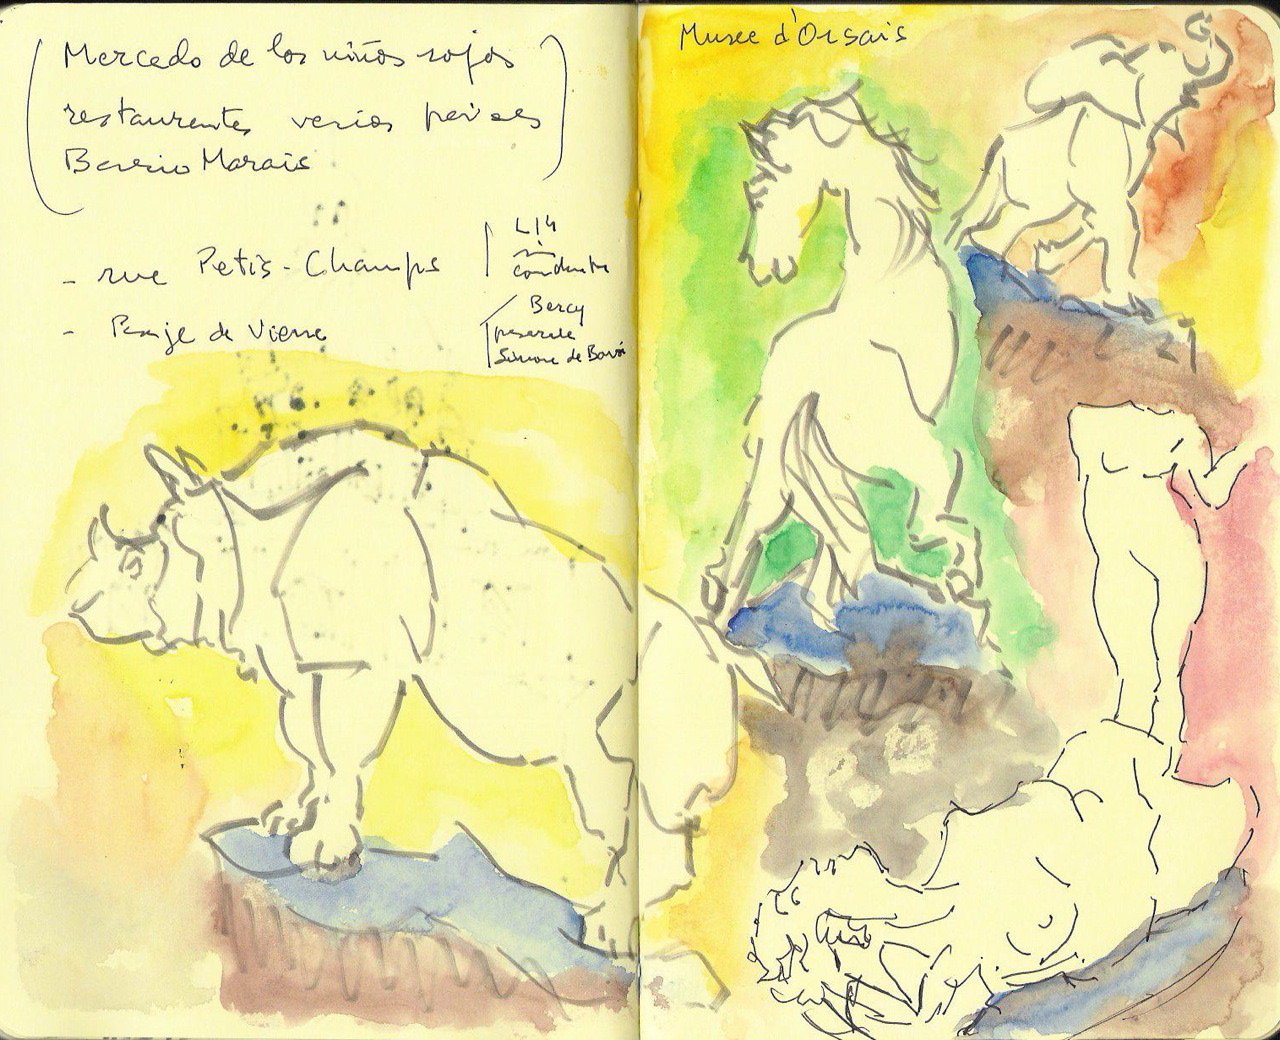 Mercado de los niños rojos
restaurantes varios países
Barrio Marais
- rue Petis-Champs
- Pasaje de Vienne
L14
sin
conductor
Bercy
pasarela
Simone de Bovoi
Musee d'Orsais